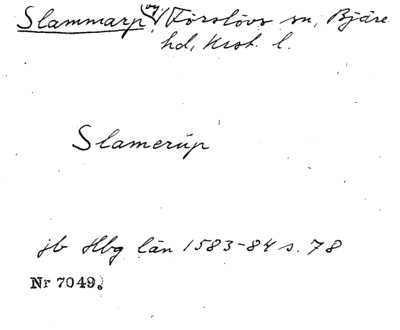 Slammarp, Förslövs sn, Bjäre
hd, Krist. l.
Slamerup
jb Hbg län 1583-84 s. 78
Nr 7049.